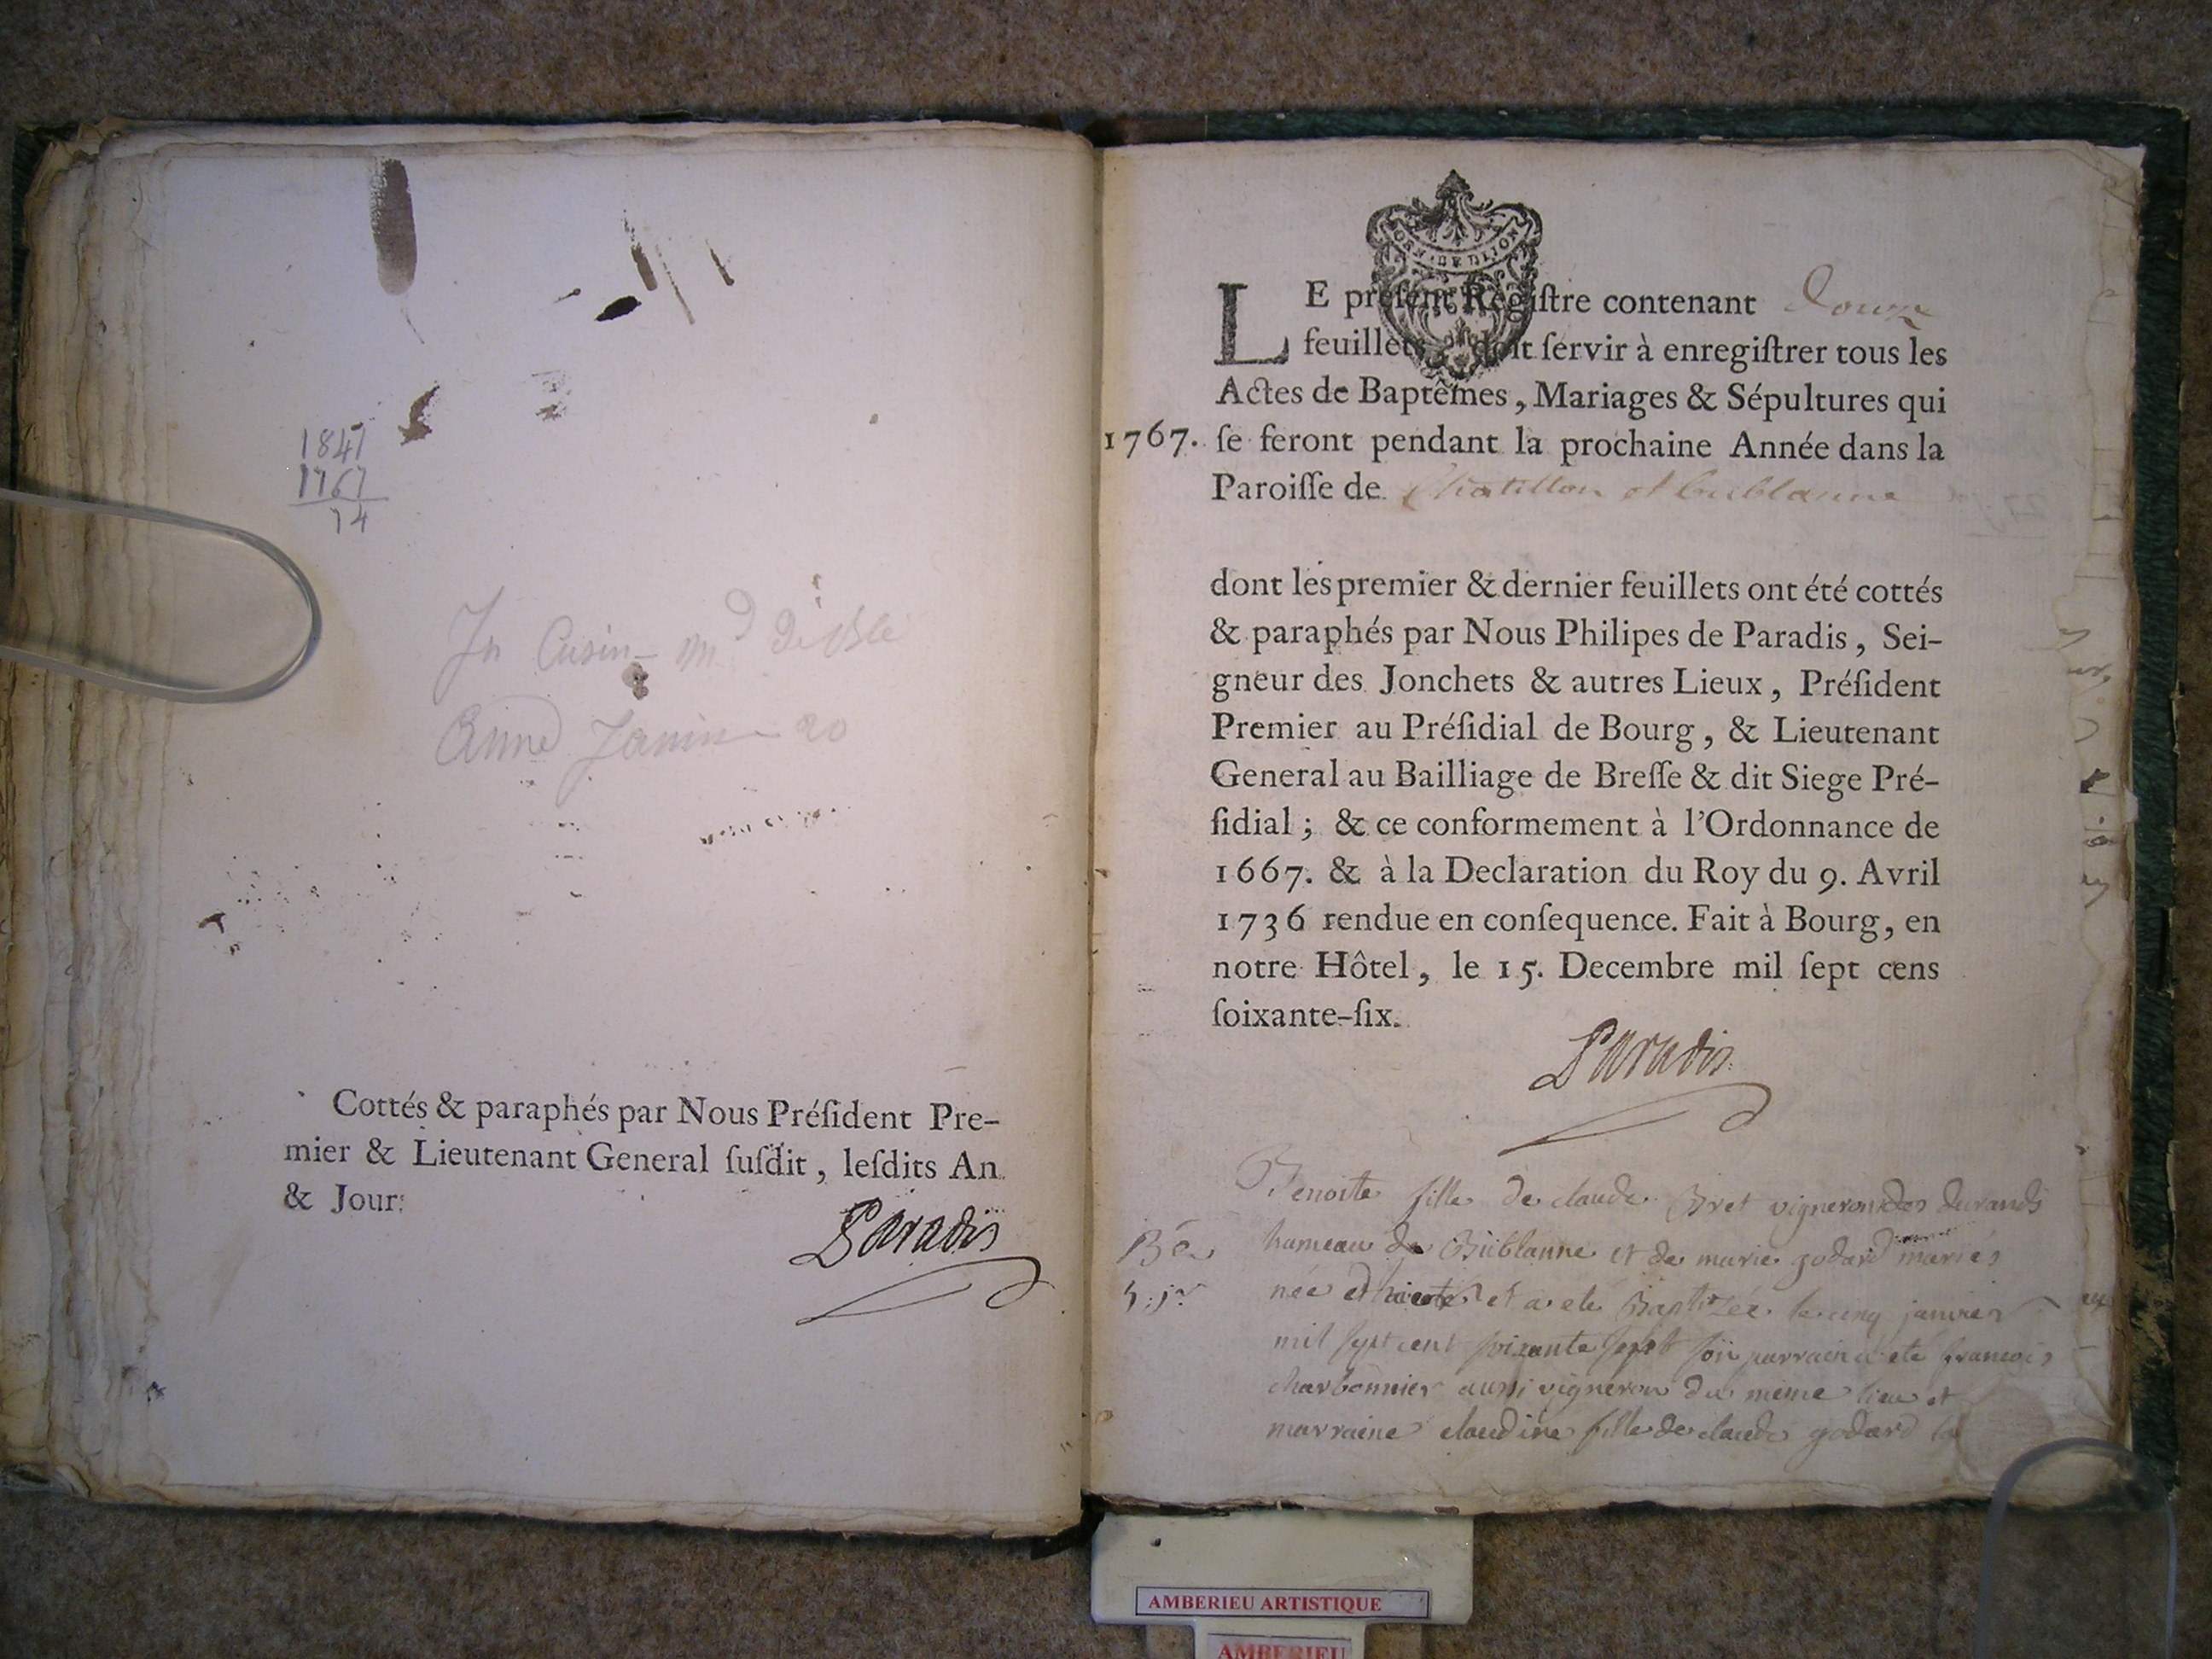 1841
1767
74
Jn Cusin md de blé
Anne Janin 20
Cottés & paraphés par Nous Préſident Pre-
mier & Lieutenant General ſuſdit, leſdits An
& Jour.
Paradis
LE preſent Regiſtre contenant Douze
feuillets, doit ſervir à enregiſtrer tous les
Actes de Baptêmes, Mariages & Sépultures qui
1767. ſe feront pendant la prochaine Année dans la
Paroiſſe de Chatillon et bublanne
dont les premier & dernier feuillets ont été cottés
& paraphés par Nous Philipes de Paradis, Sei-
gneur des Jonchets & autres Lieux, Préſident
Premier au Préſidial de Bourg, & Lieutenant
General au Bailliage de Breſſe & dit Siege Pré-
ſidial; & ce conformement à l'Ordonnance de
1667. & à la Declaration du Roy du 9. Avril
1736 rendue en conſequence. Fait à Bourg, en
notre Hôtel, le 15. Decembre mil ſept cens
ſoixante-ſix.
Paradis
Benoite fille de claude Bret vigneron des durands
hameau de Bublanne et de marie godard mariés
née et a ete Baptizée le cinq janvier
mil sept cent soixante sept son parrain a ete francois
charbonnier aussi vigneron du meme lieu et
marraine claudine fille de claude godard
AMBERIEU ARTISTIQUE
AMBERIEU